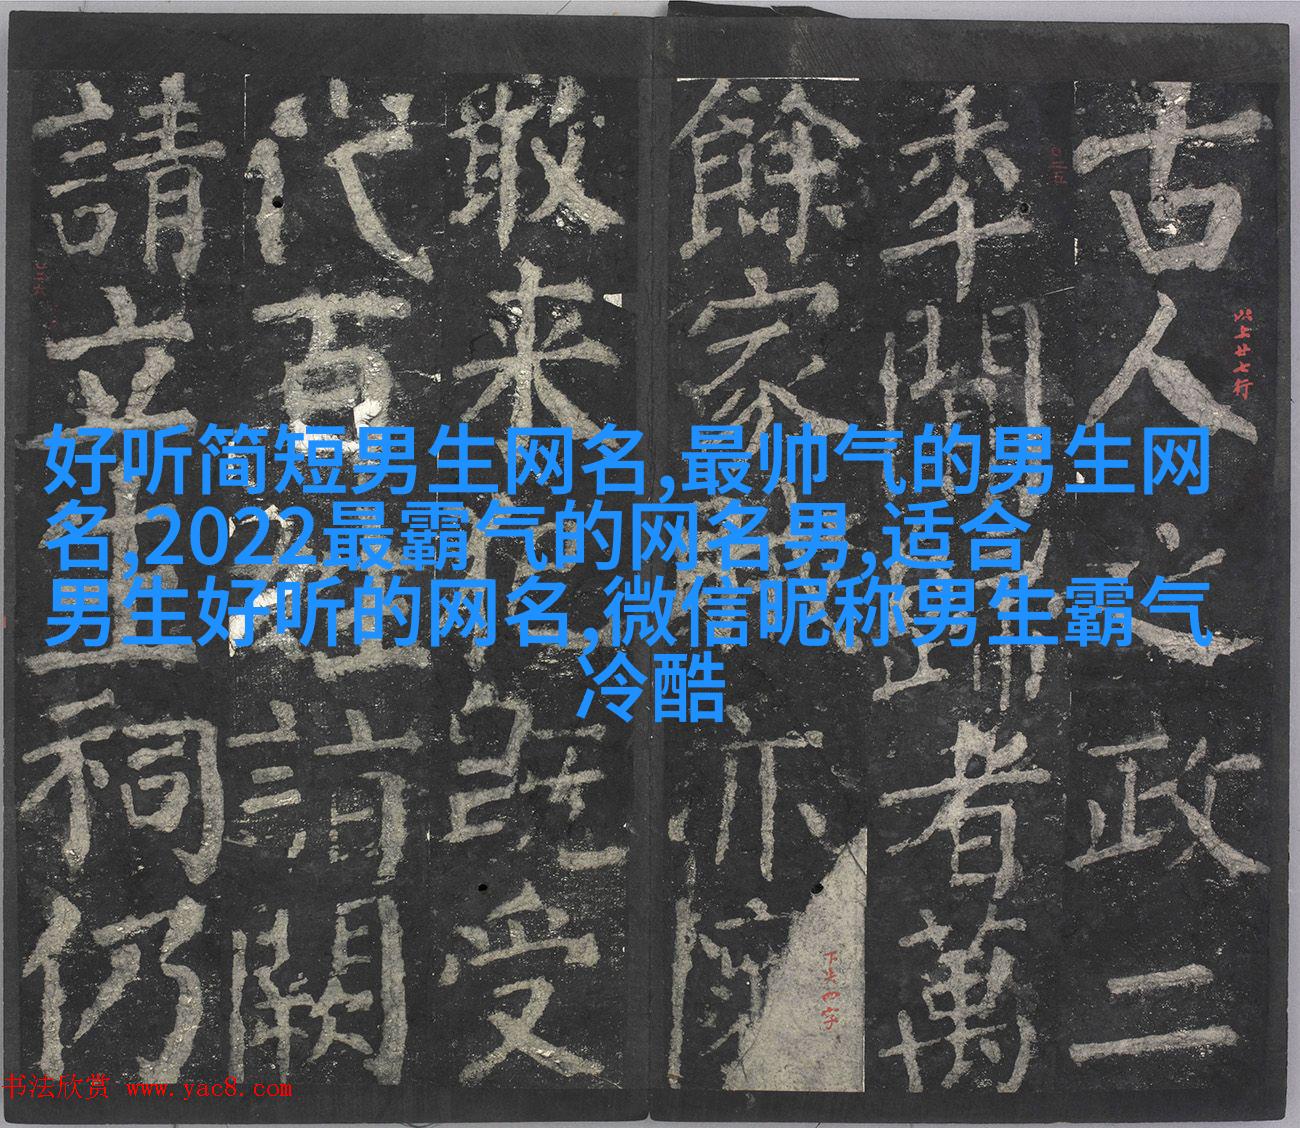 好听简短男生网名,最帅气的男生网
名,2022最霸气的网名男,适合
男生好听的网名,微信昵称男生霸气
冷酷
古人之政二
秊閒歸者萬
餘家亦
敢来既受
代百詣闕
請立生祠仍
以上廿七行
下失四字
书法欣赏 www.yac8.com